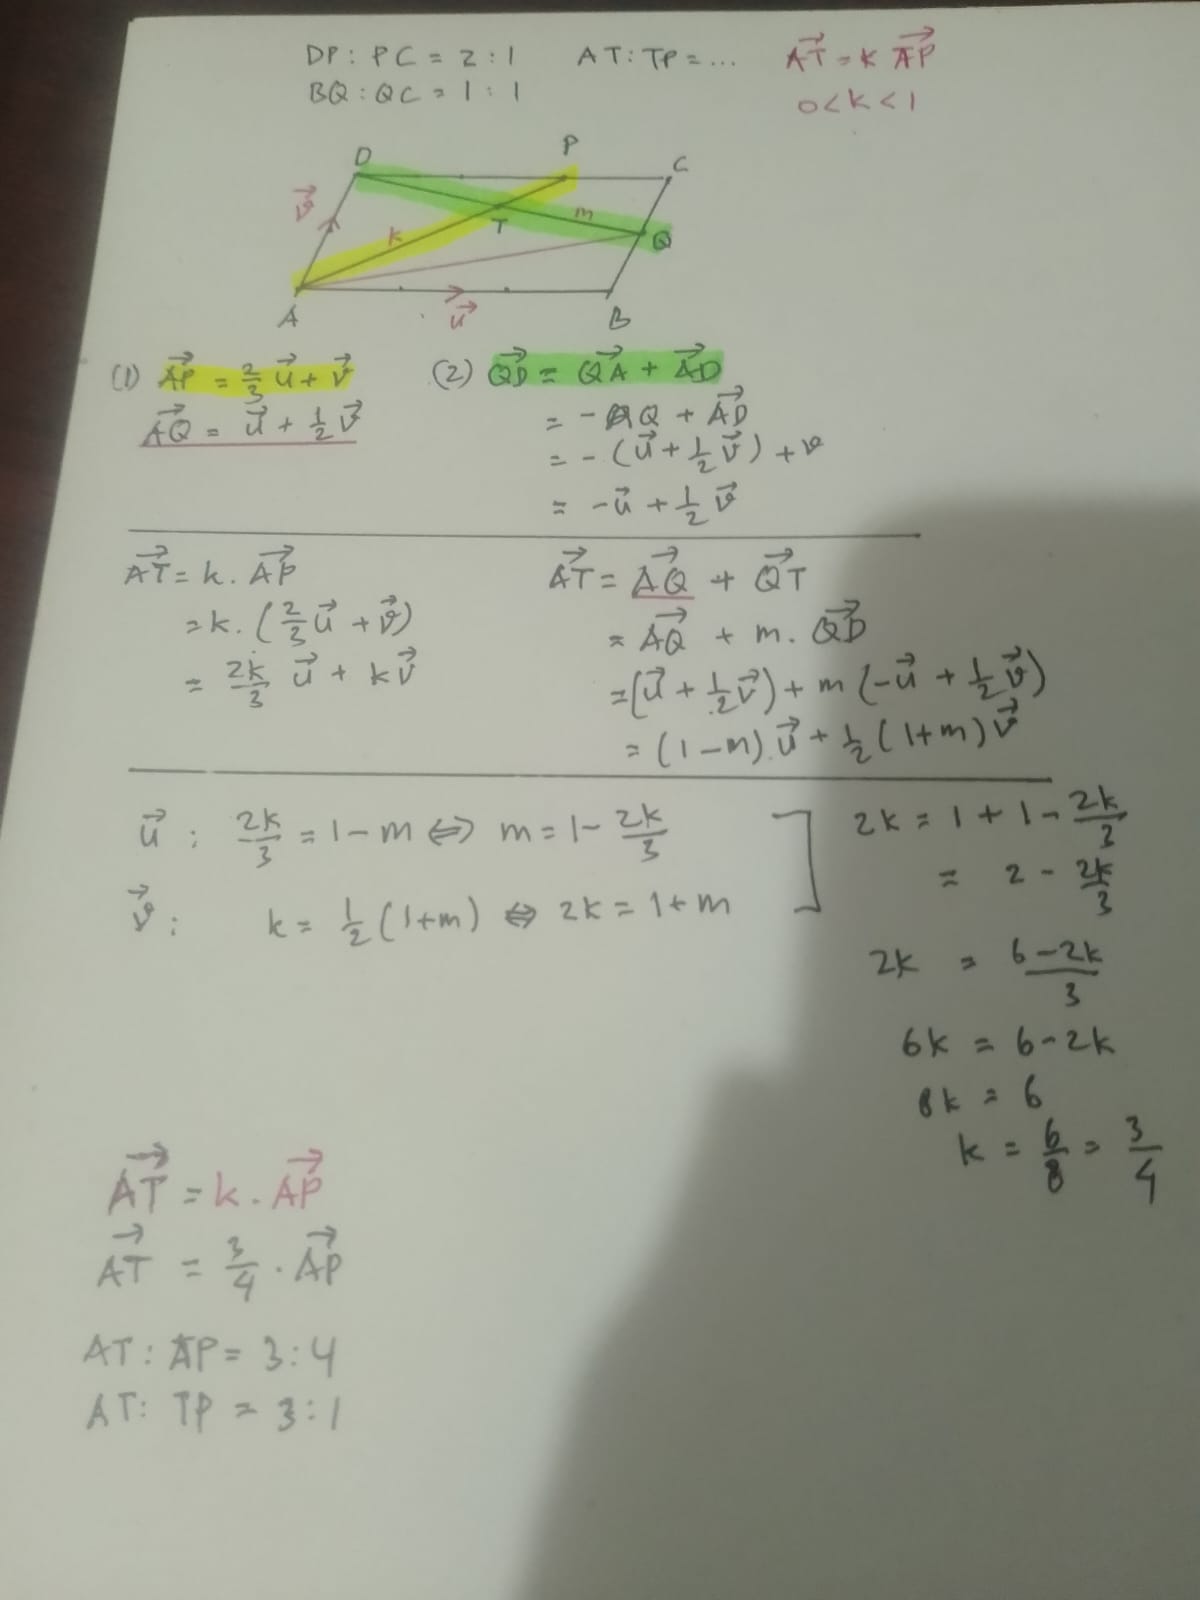 DP : PC = 2 : 1    AT : TP = ...    \vec{AT} = k \vec{AP}
BQ : QC = 1 : 1    0 < k < 1
D P C
\vec{v} k T m Q
A \vec{u} B
(1) \vec{AP} = \frac{2}{3} \vec{u} + \vec{v}
\vec{AQ} = \vec{u} + \frac{1}{2} \vec{v}
(2) \vec{QD} = \vec{QA} + \vec{AD}
= - AQ + \vec{AD}
= - (\vec{u} + \frac{1}{2} \vec{v}) + v
= -\vec{u} + \frac{1}{2} \vec{v}
\vec{AT} = k . \vec{AP}
= k . (\frac{2}{3} \vec{u} + \vec{v})
= \frac{2k}{3} \vec{u} + k \vec{v}
\vec{AT} = \vec{AQ} + \vec{QT}
= \vec{AQ} + m . \vec{QD}
= (\vec{u} + \frac{1}{2} \vec{v}) + m (-\vec{u} + \frac{1}{2} \vec{v})
= (1 - m) . \vec{u} + \frac{1}{2} (1 + m) \vec{v}
\vec{u} : \frac{2k}{3} = 1 - m ⇔ m = 1 - \frac{2k}{3}
\vec{v} : k = \frac{1}{2} (1 + m) ⇔ 2k = 1 + m
2k = 1 + 1 - \frac{2k}{3}
= 2 - \frac{2k}{3}
2k = \frac{6 - 2k}{3}
6k = 6 - 2k
8k = 6
k = \frac{6}{8} = \frac{3}{4}
\vec{AT} = k . \vec{AP}
\vec{AT} = \frac{3}{4} . \vec{AP}
AT : AP = 3 : 4
AT : TP = 3 : 1